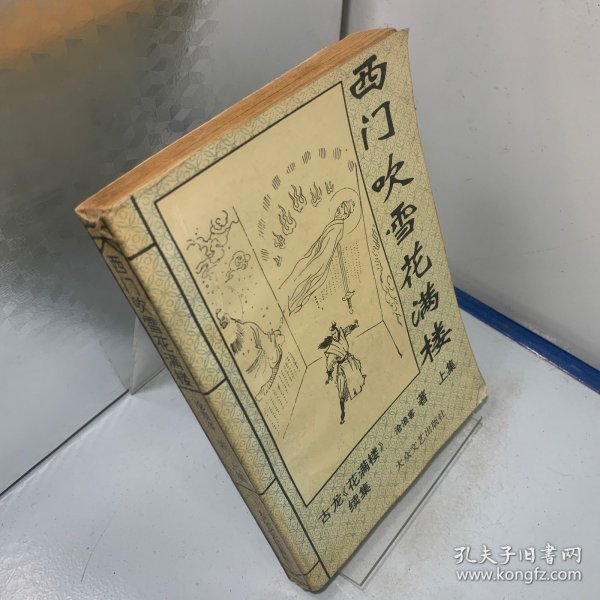 西门吹雪花满楼
上集
沧浪客 著
大众文艺出版社
古龙《花满楼》
续集
孔夫子旧书网
www.kongfz.com